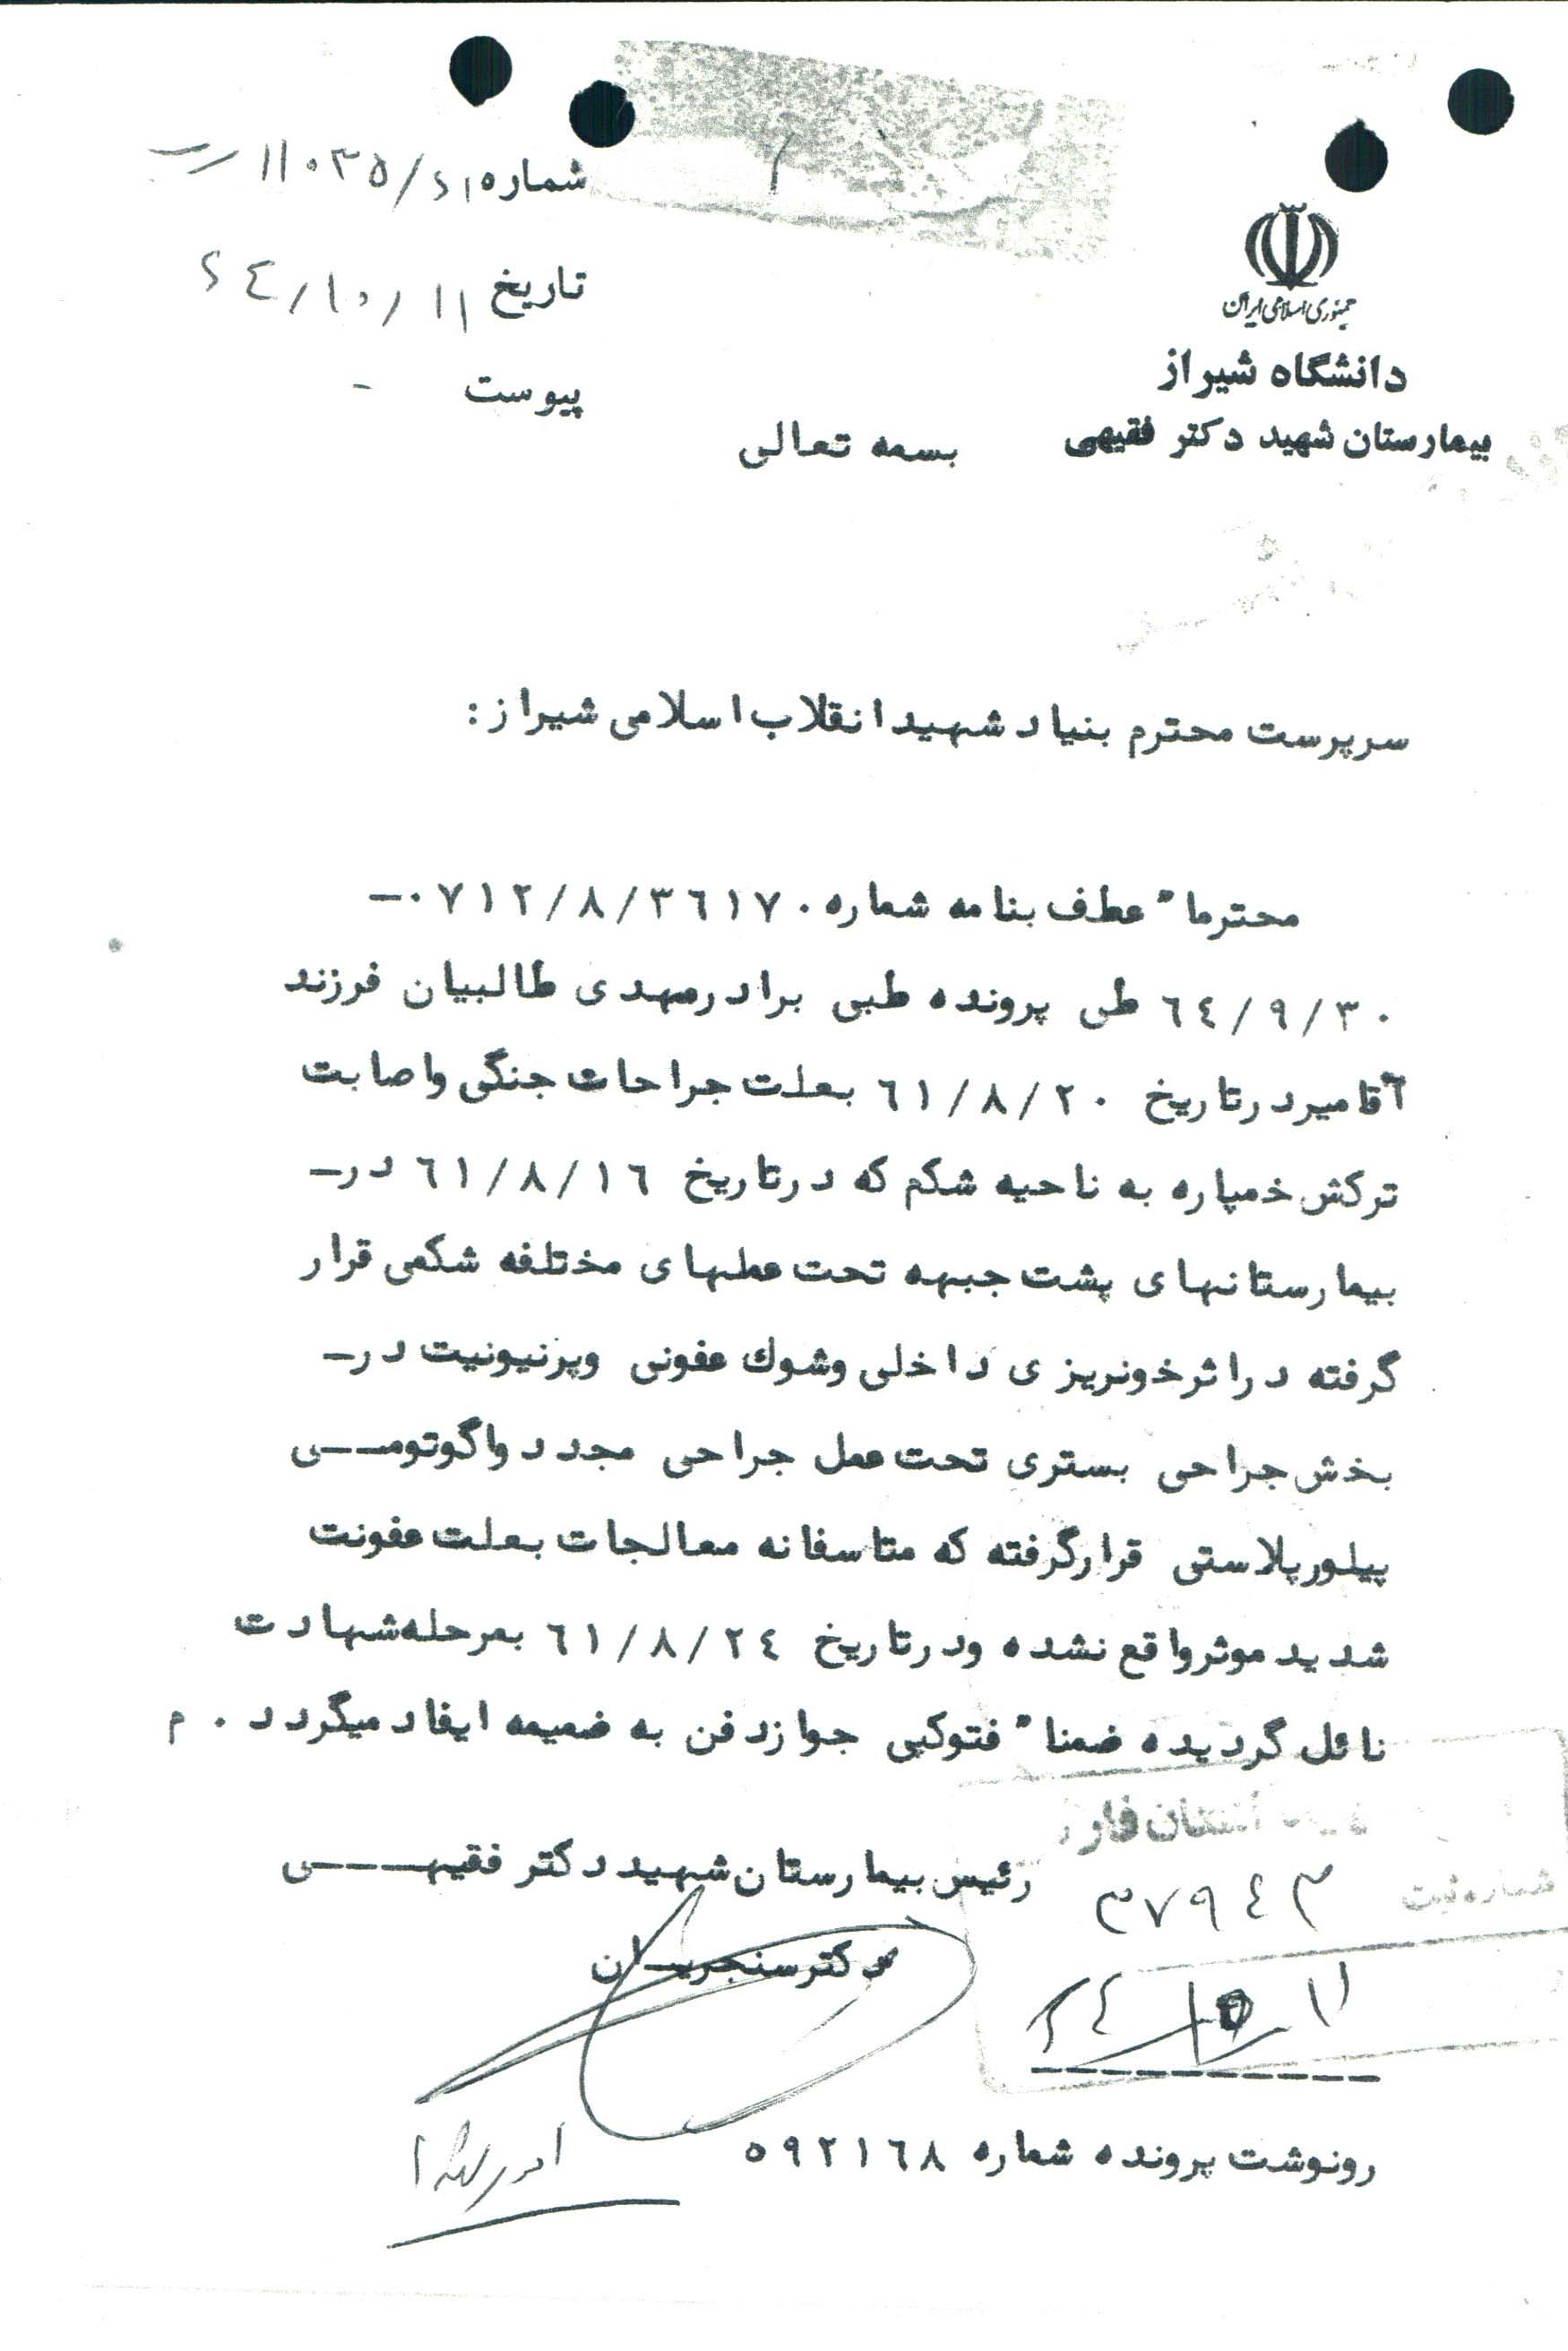 جمهوری اسلامی ایران
دانشگاه شیراز
بیمارستان شهید دکتر فقیهی
شماره ۱۱۰۳۵/۶۱
تاریخ ۶۴/۱۰/۱۱
پیوست -
بسمه تعالی
سرپرست محترم بنیاد شهید انقلاب اسلامی شیراز :
محترما" عطف بنامه شماره ۰۷۱۲/۸/۳٦۱۷۰-
٦٤/۹/۳۰ طی پرونده طبی برادر مهدی طالبیان فرزند
آقامیر در تاریخ ٦۱/۸/۲۰ بعلت جراحات جنگی واصابت
ترکش خمپاره به ناحیه شکم که در تاریخ ٦۱/۸/۱٦ در-
بیمارستانهای پشت جبهه تحت عملهای مختلفه شکمی قرار
گرفته در اثر خونریزی داخلی وشوك عفونی وپرنیونیت در-
بخش جراحی بستری تحت عمل جراحی مجدد واگوتومی
پیلورپلاستی قرارگرفته که متاسفانه معالجات بعلت عفونت
شدید موثر واقع نشده ودر تاریخ ٦۱/۸/۲٤ بمرحله شهادت
نائل گردیده ضمنا" فتوکپی جواز دفن به ضمیمه ایفاد میگردد . م
رئیس بیمارستان شهید دکتر فقیهی
دکتر سنجریان
استان فارس
شماره ثبت ۳۷۹٤۳
۶٤/۱۰/۱۱
رونوشت پرونده شماره ۵۹۲۱٦۸